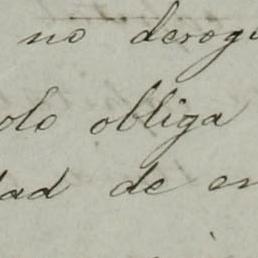 no derog
olo obliga
dad de en